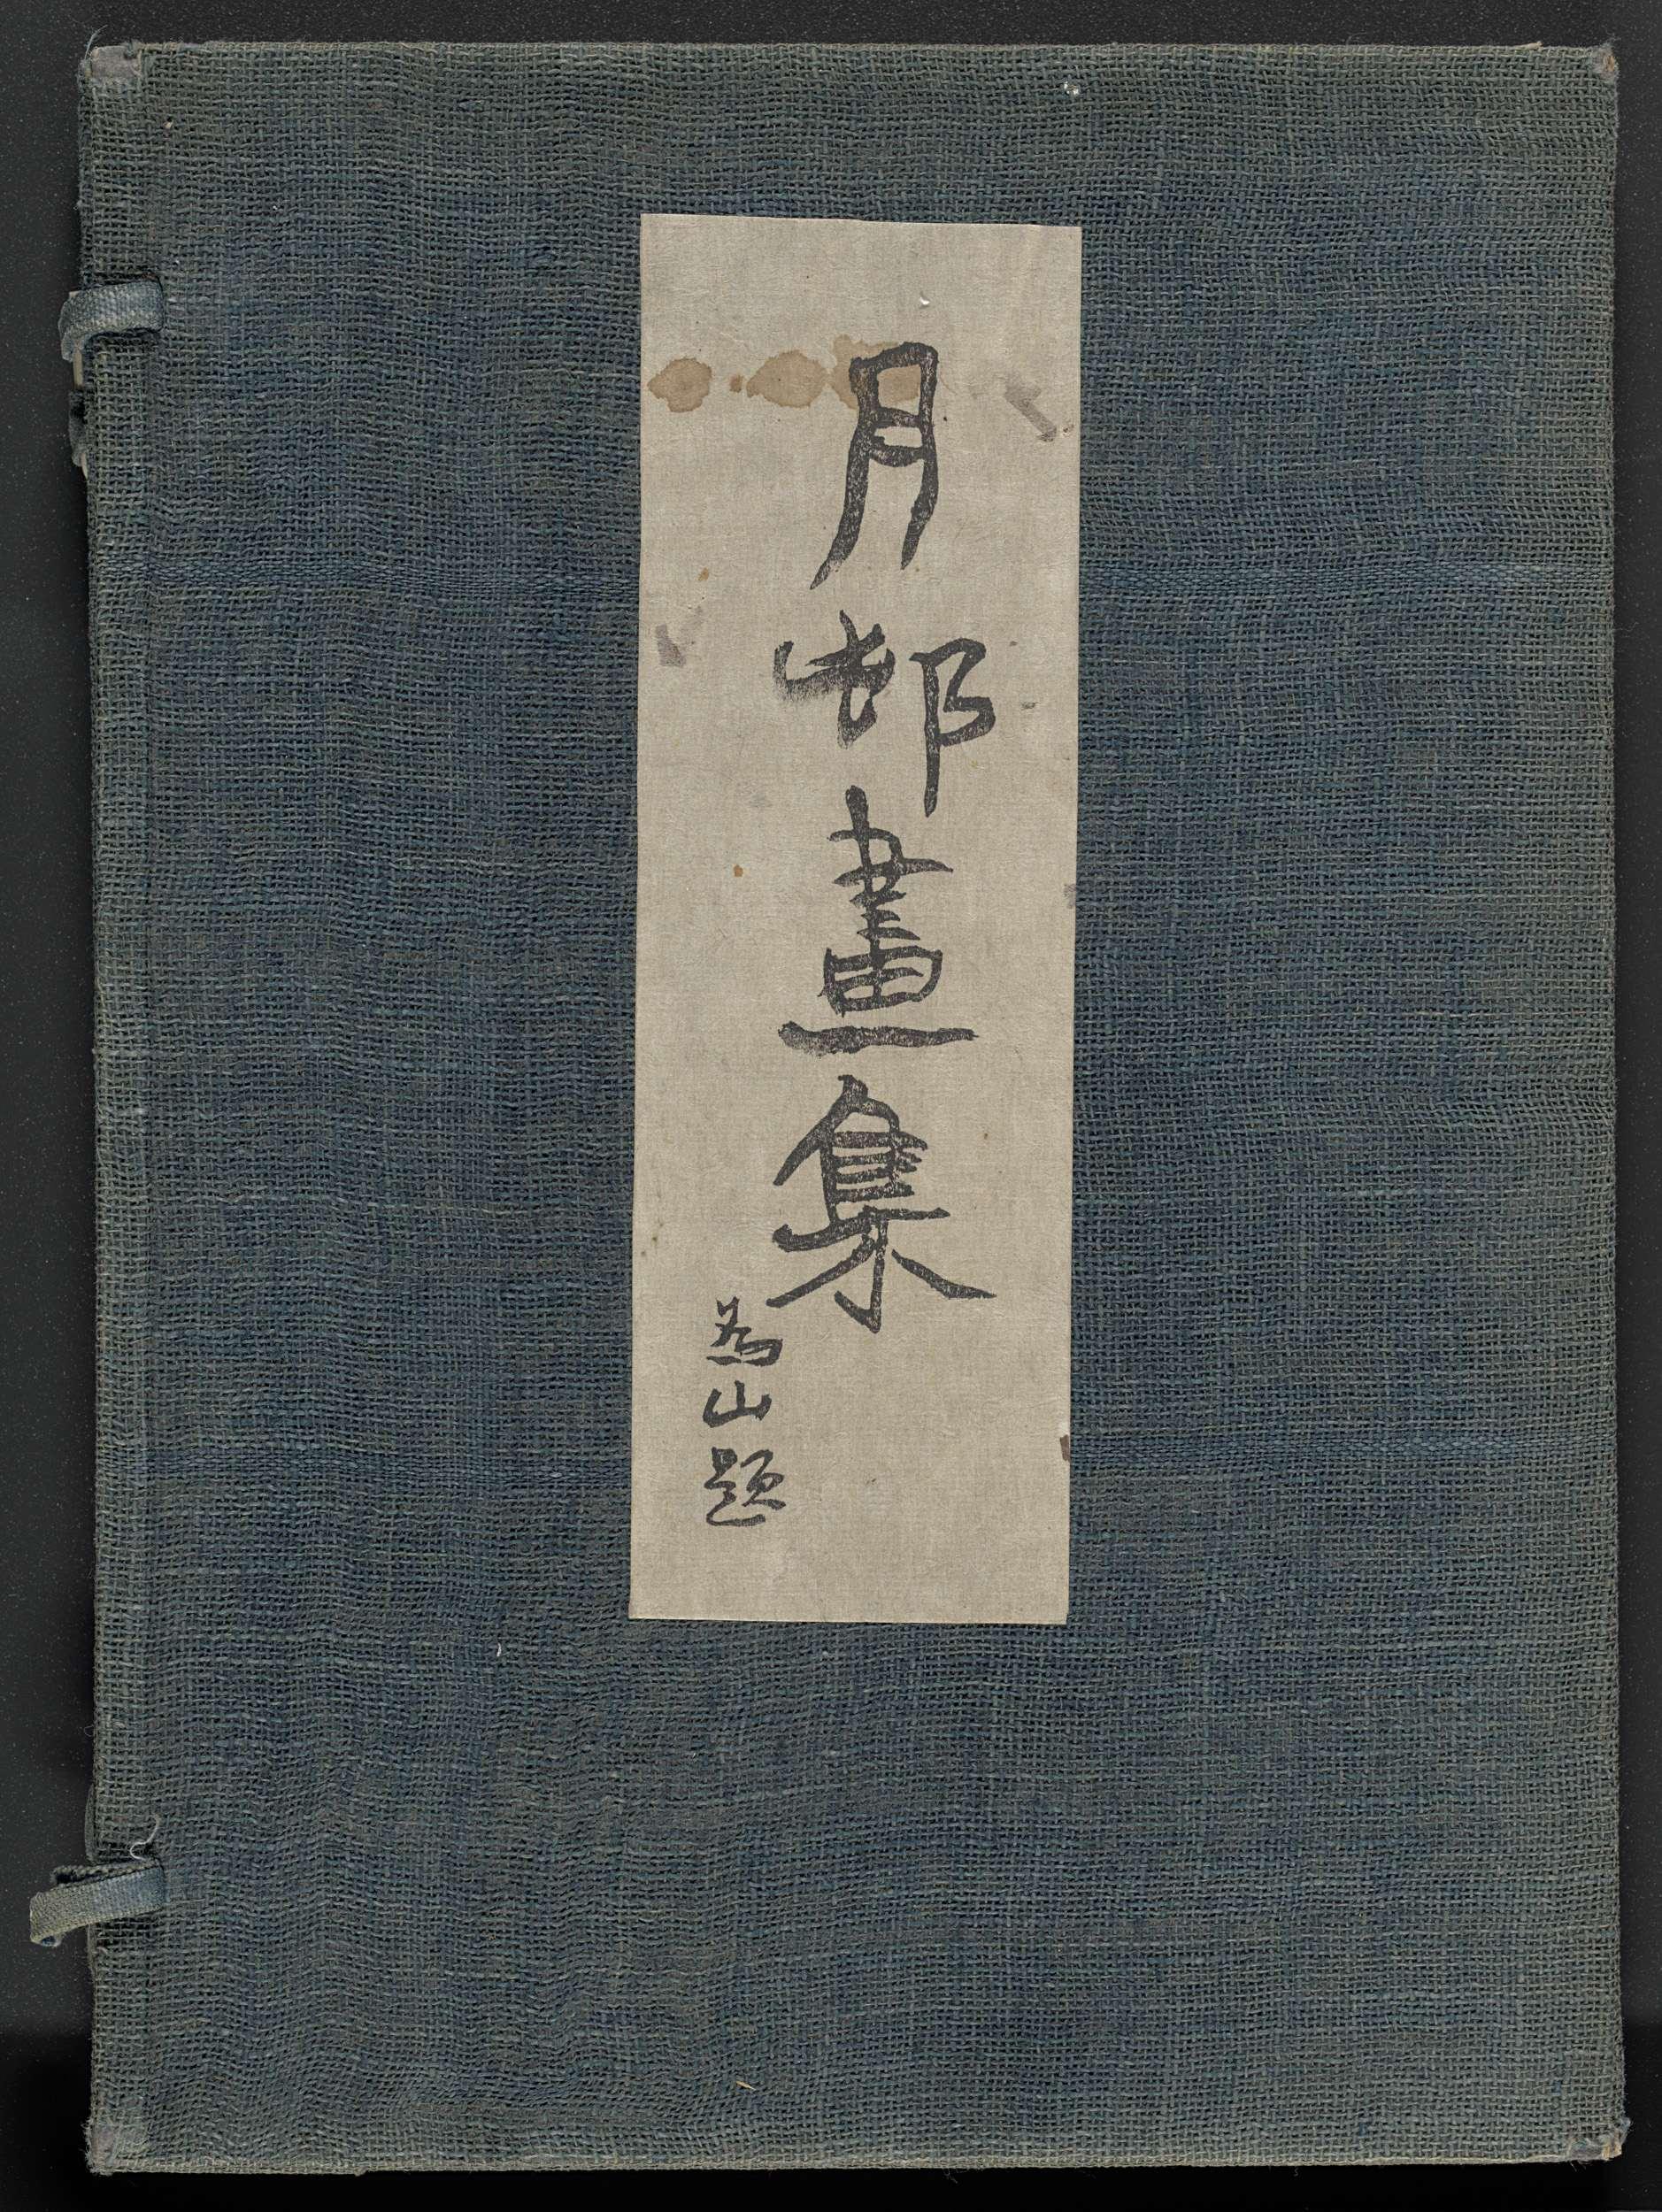 月邨畫集
為山題